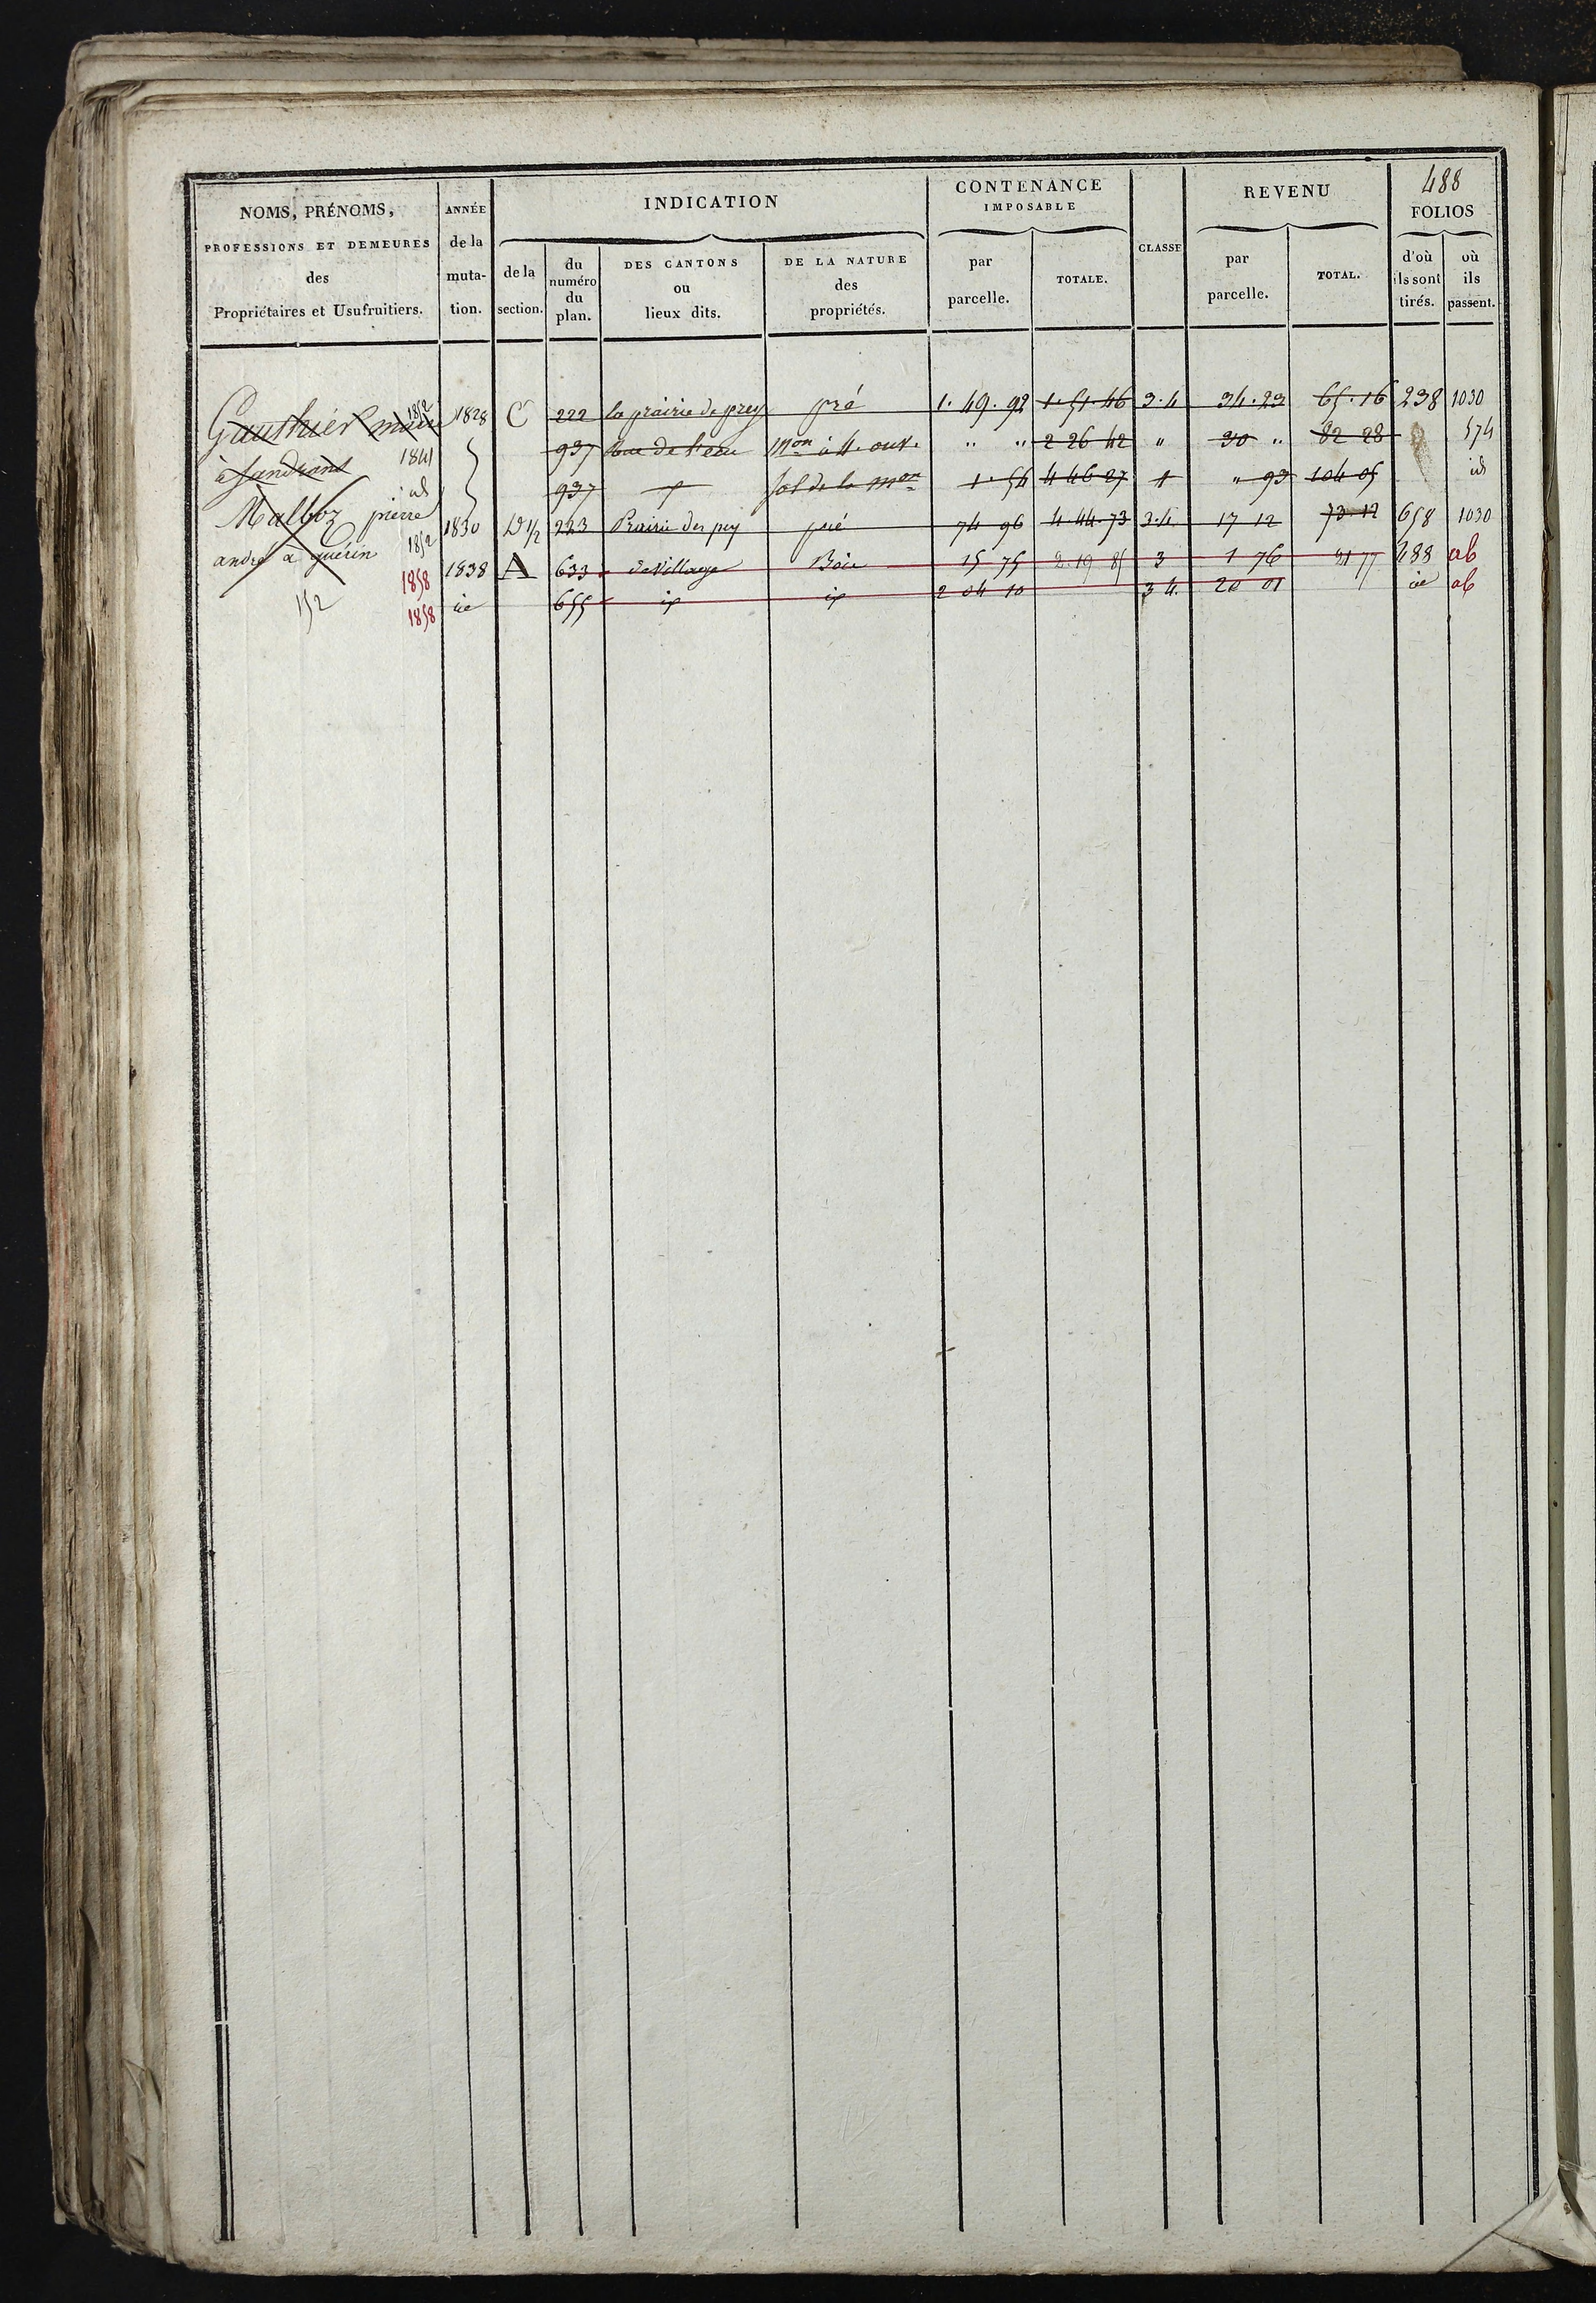 488
NOMS, PRÉNOMS,
PROFESSIONS ET DEMEURES
des
Propriétaires et Usufruitiers.
ANNÉE
de la
muta-
tion.
INDICATION
de la
section.
du
numéro
du
plan.
DES CANTONS
ou
lieux dits.
DE LA NATURE
des
propriétés.
CONTENANCE
IMPOSABLE
par
parcelle.
TOTALE.
CLASSE
REVENU
par
parcelle.
TOTAL.
FOLIOS
d'où
ils sont
tirés.
où
ils
passent.
Gauthier 1852 1828 C 222 la prairie de prey pré 1. 49. 92 1. 51. 46 3. 4 34. 23 65. 16 238 1030
à Sandrans 1841 937 Rue de l'eau Mon à 4. ouv. " " 2 26 42 " 30 " 82 28 574
id 937 Sol de la mon 1. 54 4 46 27 1 " 93 104 05 id
Malboz pierre
1852 1830 D 1/2 223 Prairie des pey pré 74 96 4. 44. 73 3. 4. 17 12 73 12 658 1030
andré à guérin
1858 1838 A 633 Bois 15 75 2. 19 85 3 1 76 21 77 488 ab
152
1858 id 655 id id 2 04 10 3 4. 20 01 id ab